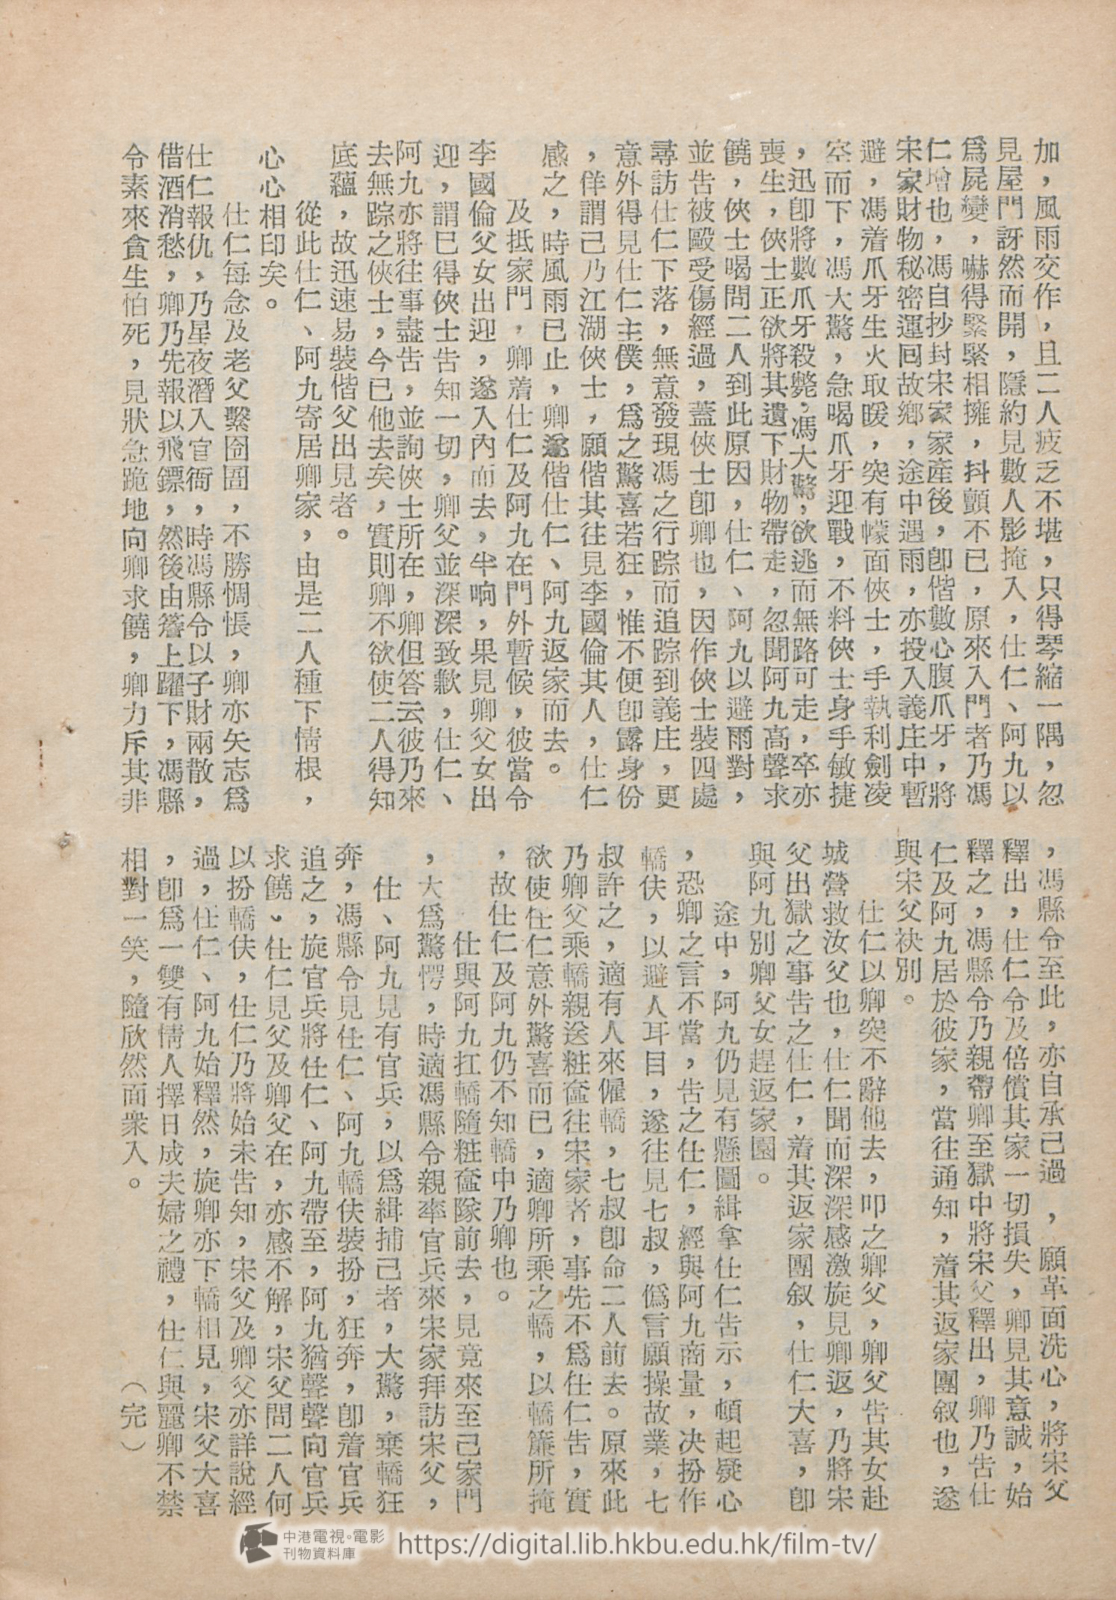 加，風雨交作，且二人疲乏不堪，只得琴縮一隅，忽
見屋門訝然而開，隱約見數人影掩入，仕仁、阿九以
爲屍變，嚇得緊緊相擁，抖顫不已，原來入門者乃馮
仁增也，馮自抄封宋家家產後，卽偕數心腹爪牙，將
宋家財物秘密運囘故鄉，途中遇雨，亦投入義庄中暫
避，馮着爪牙生火取暖，突有幪面俠士，手執利劍凌
空而下，馮大驚，急喝爪牙迎戰，不料俠士身手敏捷
，迅卽將數爪牙殺斃，馮大驚，欲逃而無路可走，卒亦
喪生，俠士正欲將其遺下財物帶走，忽聞阿九高聲求
饒，俠士喝問二人到此原因，仕仁、阿九以避雨對，
並告被毆受傷經過，蓋俠士卽卿也，因作俠士裝四處
尋訪仕仁下落，無意發現馮之行踪而追踪到義庄，更
意外得見仕仁主僕，爲之驚喜若狂，惟不便卽露身份
，佯謂己乃江湖俠士，願偕其往見李國倫其人，仕仁
感之，時風雨已止，卿遂偕仕仁、阿九返家而去。
及抵家門，卿着仕仁及阿九在門外暫候，彼當令
李國倫父女出迎，遂入內而去，半响，果見卿父女出
迎，謂已得俠士告知一切，卿父並深深致歉，仕仁、
阿九亦將往事盡告，並詢俠士所在，卿但答云彼乃來
去無踪之俠士，今已他去矣，實則卿不欲使二人得知
底蘊，故迅速易裝偕父出見者。
從此仕仁、阿九寄居卿家，由是二人種下情根，
心心相印矣。
仕仁每念及老父繫囹圄，不勝惆悵，卿亦矢志爲
仕仁報仇，乃星夜潛入官衙，時馮縣令以子財兩散，
借酒消愁，卿乃先報以飛鏢，然後由簷上躍下，馮縣
令素來貪生怕死，見狀急跪地向卿求饒，卿力斥其非
，馮縣令至此，亦自承己過，願革面洗心，將宋父
釋出，仕仁令及倍償其家一切損失，卿見其意誠，始
釋之，馮縣令乃親帶卿至獄中將宋父釋出，卿乃告仕
仁及阿九居於彼家，當往通知，着其返家團叙也，遂
與宋父袂別。
仕仁以卿突不辭他去，叩之卿父，卿父告其女赴
城營救汝父也，仕仁聞而深深感激旋見卿返，乃將宋
父出獄之事告之仕仁，着其返家團叙，仕仁大喜，卽
與阿九別卿父女趕返家園。
途中，阿九仍見有懸圖緝拿仕仁告示，頓起疑心
，恐卿之言不當，告之仕仁，經與阿九商量，决扮作
轎伕，以避人耳目，遂往見七叔，僞言願操故業，七
叔許之，適有人來僱轎，七叔卽命二人前去。原來此
乃卿父乘轎親送粧奩往宋家者，事先不爲仕仁告，實
欲使仕仁意外驚喜而已，適卿所乘之轎，以轎簾所掩
，故仕仁及阿九仍不知轎中乃卿也。
仕與阿九扛轎隨粧奩隊前去，見竟來至己家門
，大爲驚愕，時適馮縣令親率官兵來宋家拜訪宋父，
仕、阿九見有官兵，以爲緝捕己者，大驚，棄轎狂
奔，馮縣令見仕仁、阿九轎伕裝扮，狂奔，卽着官兵
追之，旋官兵將仕仁、阿九帶至，阿九猶聲聲向官兵
求饒、仕仁見父及卿父在，亦感不解，宋父問二人何
以扮轎伕，仕仁乃將始末告知，宋父及卿父亦詳說經
過，仕仁、阿九始釋然，旋卿亦下轎相見，宋父大喜
，卽爲一雙有情人擇日成夫婦之禮，仕仁與麗卿不禁
相對一笑，隨欣然面衆入。　（完）
中港電視•電影
刊物資料庫
https://digital.lib.hkbu.edu.hk/film-tv/